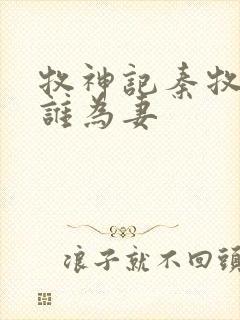 牧神記秦牧
誰為妻
浪子就不回頭